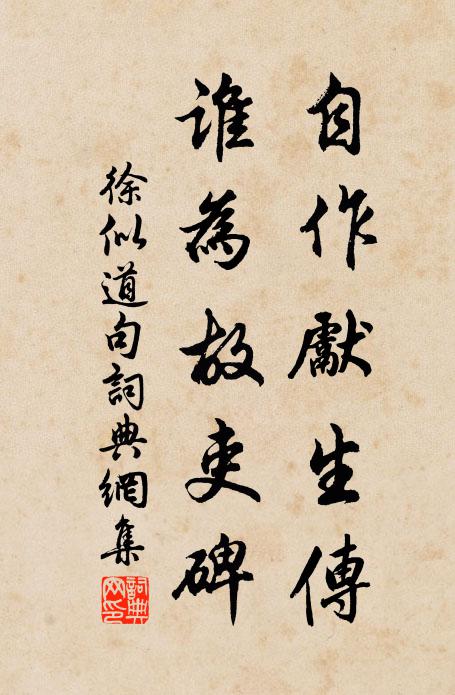 自作獻生傳
誰為故吏碑
徐似道句詞典網集
詞典网印